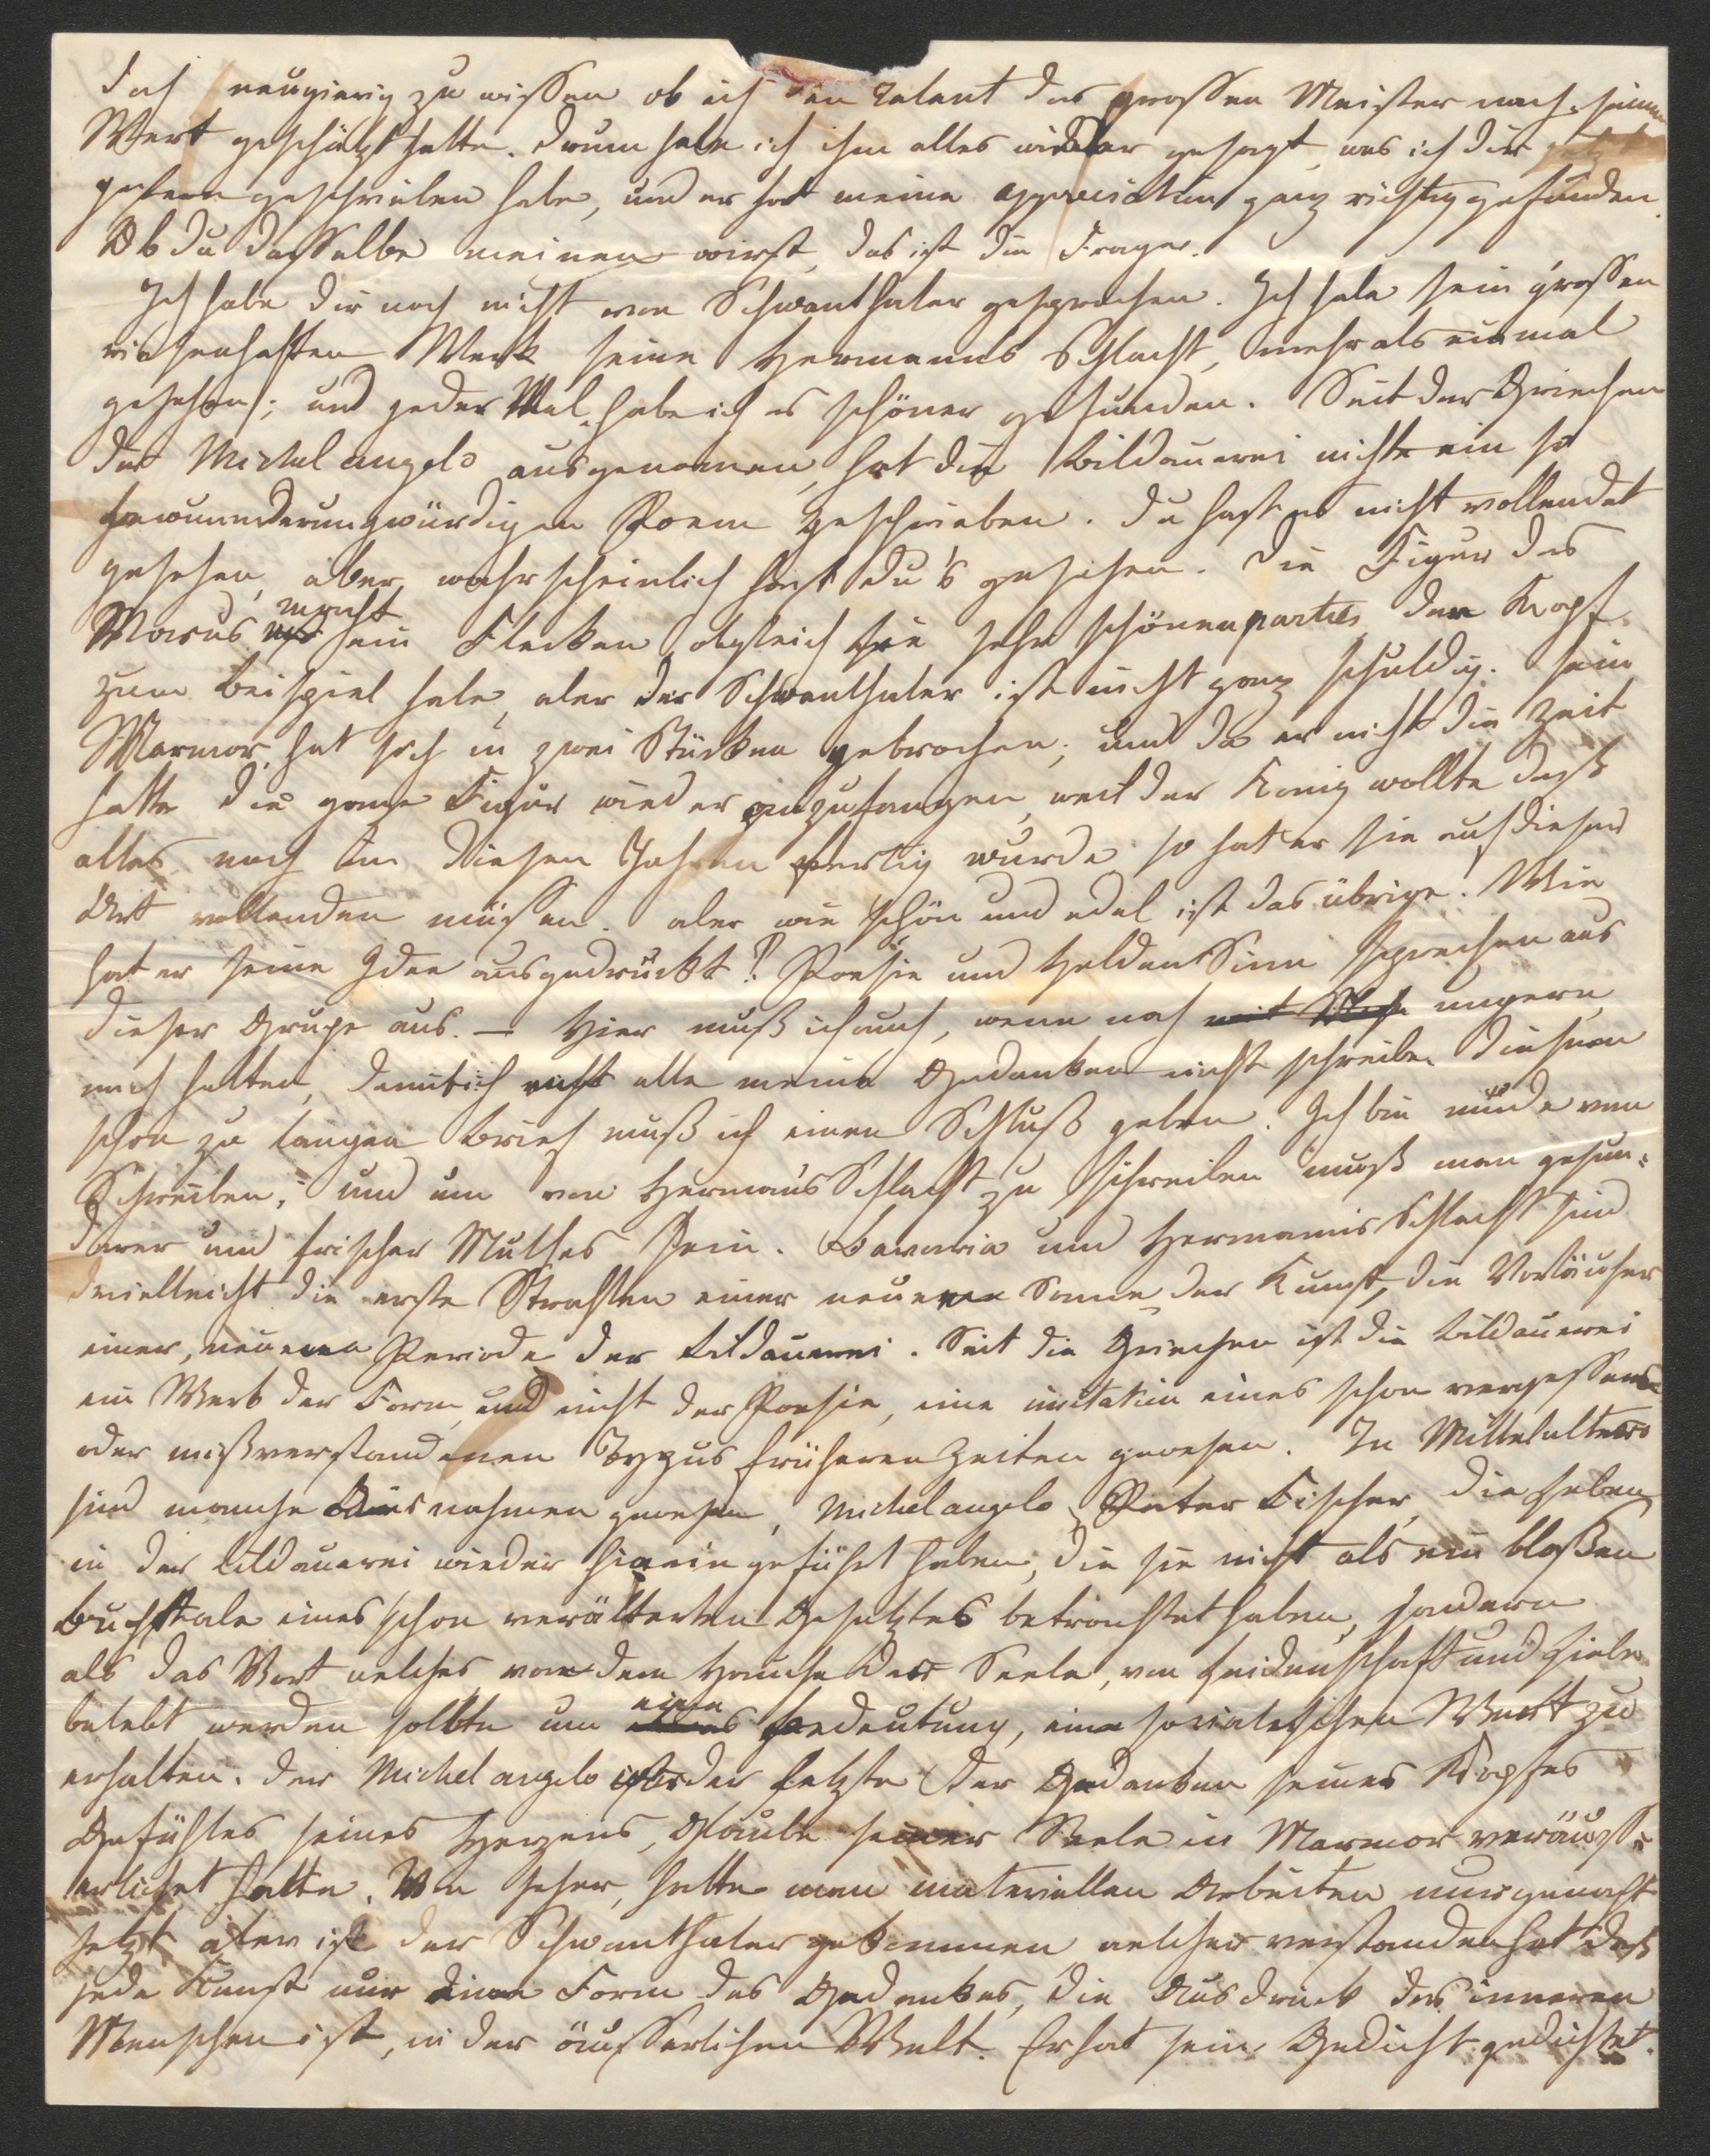 doch neugierig zu wissen ob ich den Talent des grossen Meister nach seinem
Wert geschätzt hatte. Drum habe ich ihm alles wieder gesagt, was ich dir
gestern geschrieben habe, und er hat meine appreciation ganz richtig gefunden.
Ob du dasselbe meinen wirst, das ist die Frage.
Ich habe dir noch nicht von Schwanthaler gesprochen. Ich habe sein grossen
riesenhaften Werk seine Hermanns Schlacht, mehr als einmal
gesehen; und jeder Mal habe ich es schöner gefunden. Seit der Griechen
der Michel angelo ausgenomen, hat die Bildauerei nicht ein so
bewunnderungwürdigen Poem geschrieben. Du hast es nicht vollendet
gesehen, aber wahrscheinlich hast du's gesehen. Die Figur des
Marus macht sein Flecken obgleich sie sehr schönen parties den Kopf
zum Beispiel habe, aber der Schwanthaler ist nicht ganz schuldig. Sein
Marmor hat sich in zwei Stücken gebrochen; und da er nicht die Zeit
hatte die ganze Figur wieder anzufangen, weil der König wollte daß
alles noch im diesen Jahren fertig wurde so hat er sie auf dieser
Art vollenden müssen. aber wie schön und edel ist das übrige! Wie
hat er seine Idee ausgedrückt! Poesie und Helden Sinn sprechen aus
dieser Grupe aus. — Hier muß ich auch, wenn noch mit ungern,
mich halten, damit ich nicht alle meine Gedanken nicht schreibe. Diesem
schon zu langen Brief muß ich einen Schluß geben. Ich bin müde von
Schreiben, und um von Herman's Schlacht zu schreiben muß man gesun-
derer und frischer Muthes sein. Bavaria und Hermanns Schlacht sind
vielleicht die erste Strahlen einer neueren Sonne der Kunst, die Vorläufer
einer, neueren Periode der Bildauerei. Seit die Griechen ist die Bildauerei
ein Werk der Form, und nicht der Poesie, eine imitation eines schon vergessene
oder mißverstandenen Typus früheren Zeiten gewesen. In Mittelalters
sind manche Ausnahmen gewesen, Michel angelo, Peter Fischer, die Leben
in der Bildauerei wieder hinein geführt haben; die sie nicht als ein bloßen
Buchstabe eines schon verälterten Gesetztes betrachtet haben, sondern
als das Wort welches von dem Hauche der Seele, von Leidenschaft und Ziele
belebt werden sollte um eine Bedeutung, eine Wert zu
erhalten. Der Michel angelo ist der letzte der Gedanken seines Kopfes
Gefühles seines Herzens, Glaube seiner Seele in Marmor veräuss-
erlichet hatte. Von jeher, hatte man materiellen Arbeiten nur gemacht
jetzt aber ist der Schwanthaler gekommen welcher verstanden hat daß
jede Kunst nur eine Form des Gedankes, die Ausdruck des inneren
Menschen ist, in der äusserlichen Welt. Er hat sein Gedicht gedichtet.